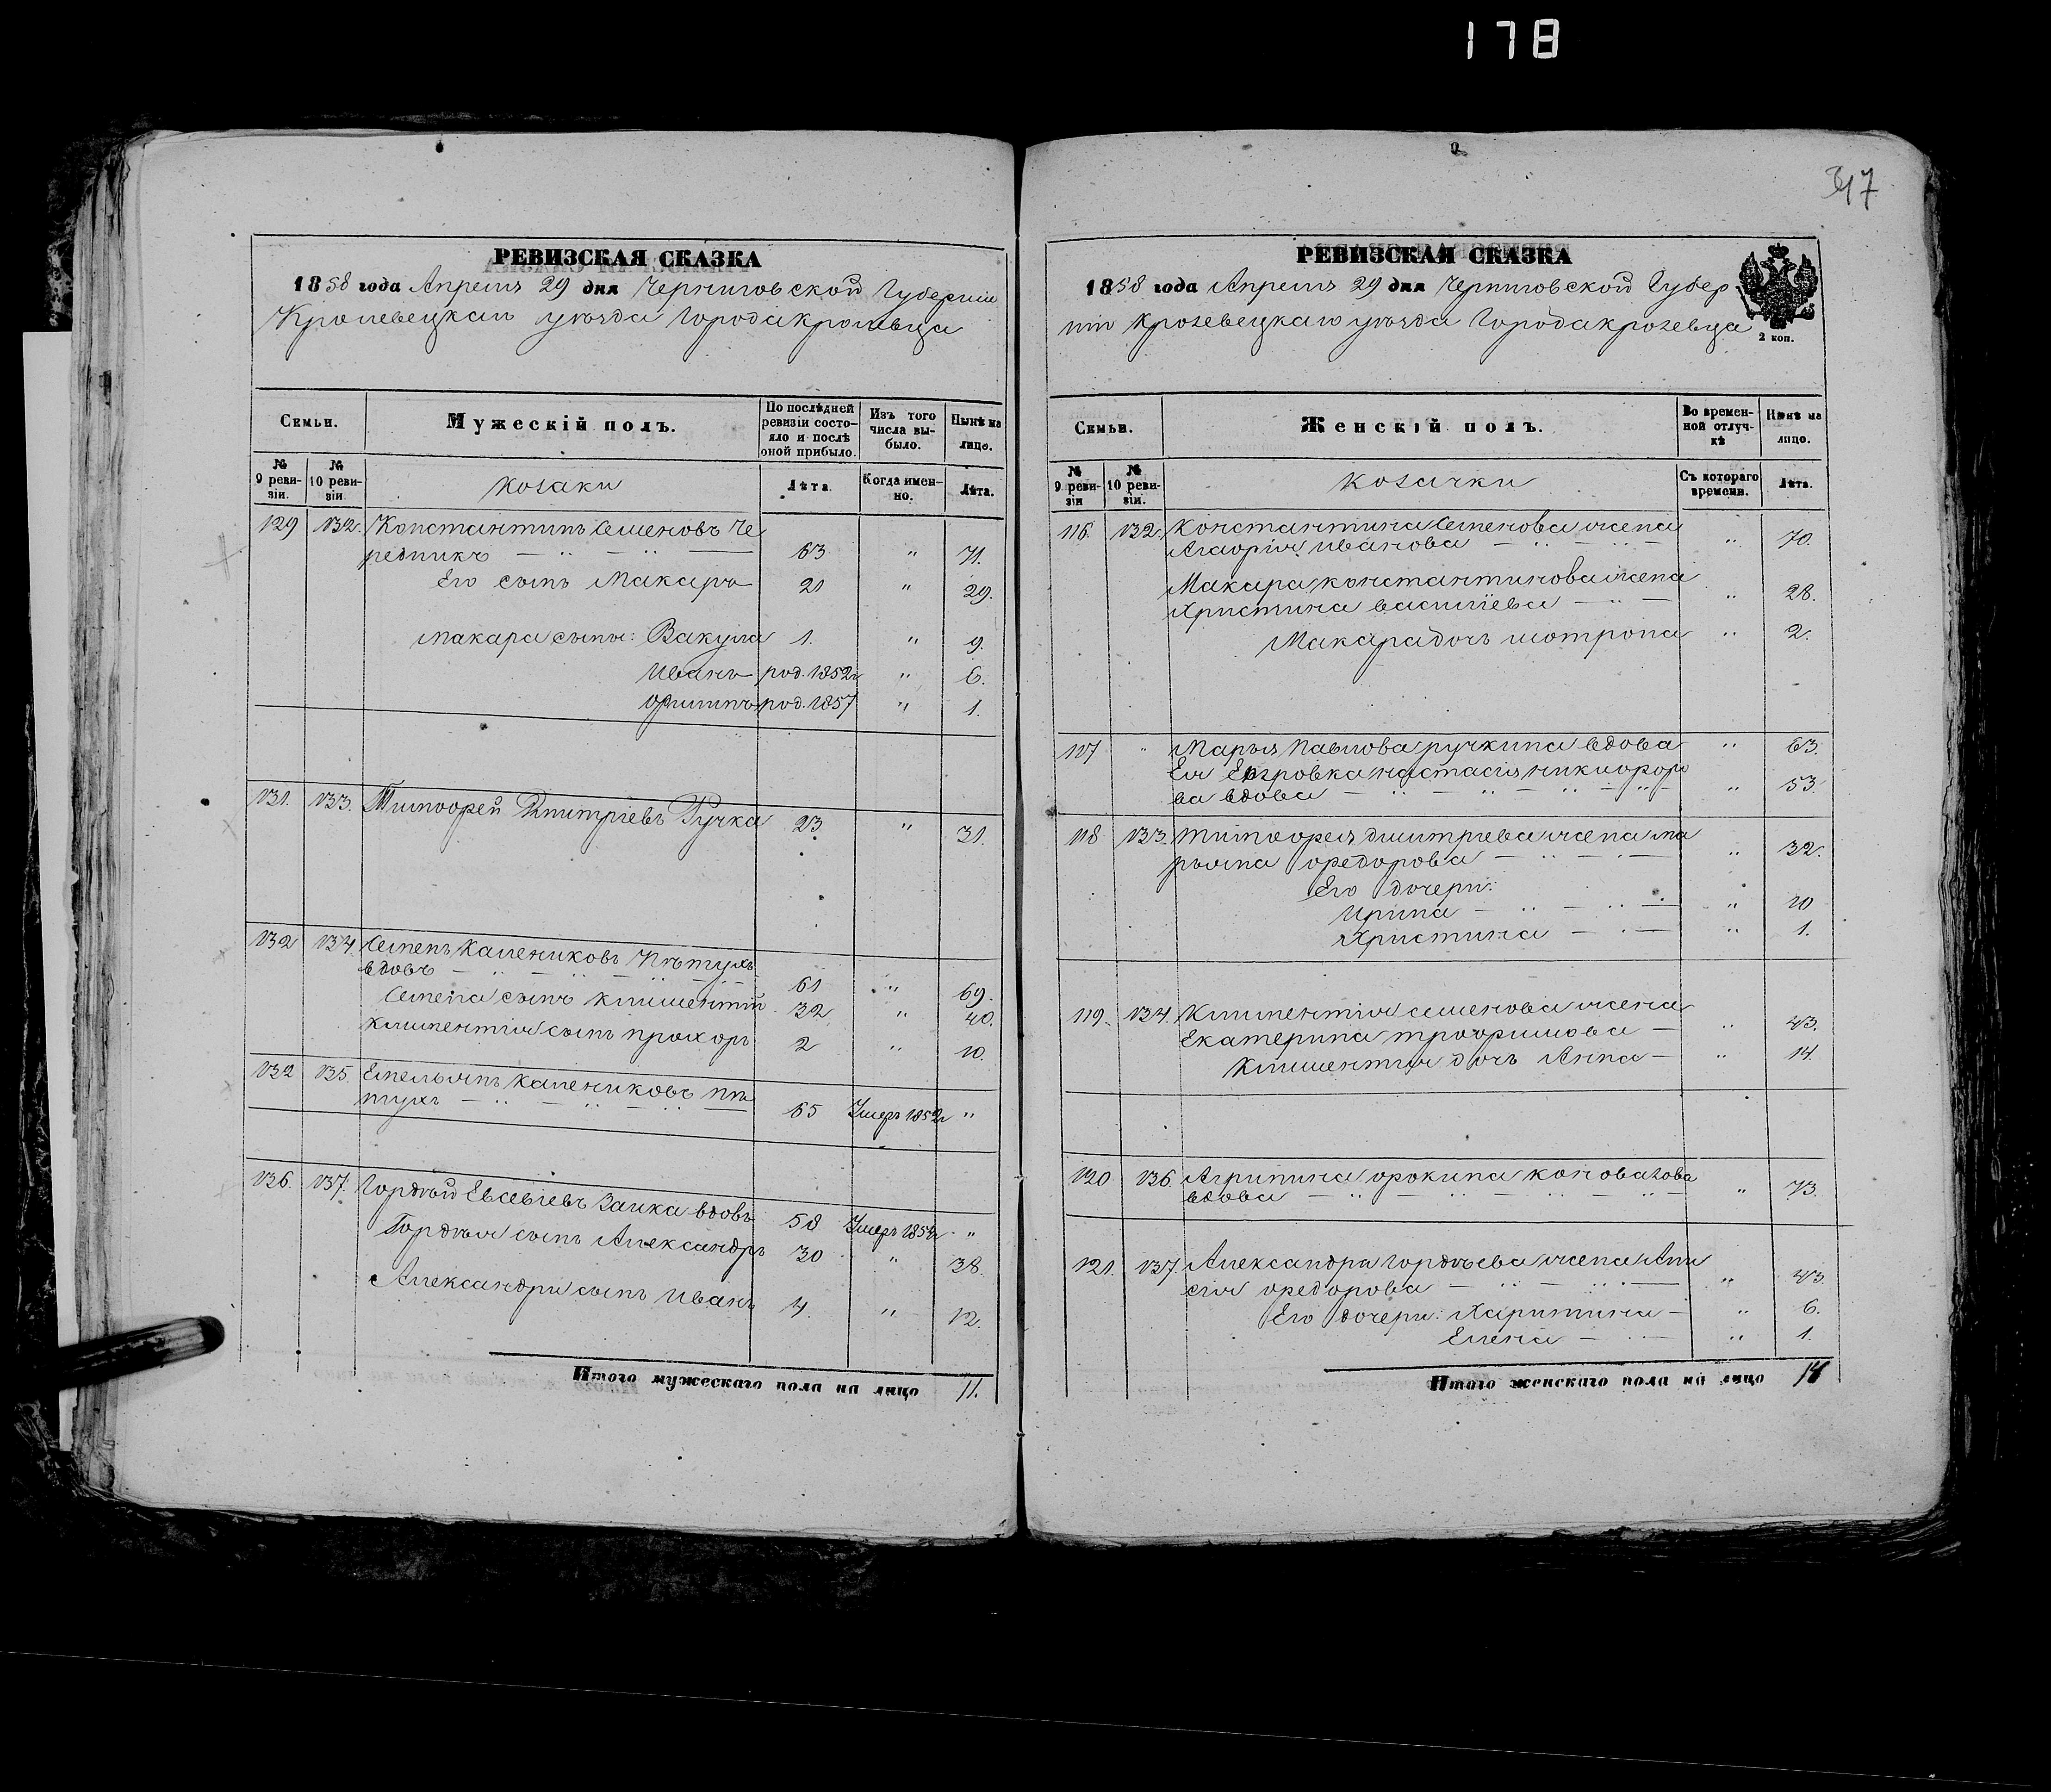 178
317
РЕВИЗСКАЯ СКАЗКА
1858 года Апреля 29 дня Черниговской Губернии
Кролевецкаго уѣзда Города Кролевца
Семьи.
Мужескій полъ.
По послѣдней ревизіи состояло и послѣ оной прибыло.
Изъ того числа выбыло.
Нынѣ на лицо.
№ 9 ревизіи.
№ 10 ревизіи
Козаки
Лѣта
Когда именно.
Лѣта.
129 132. Константинъ Семеновъ Че
редникъ 63 " 71.
Его сынъ Макаръ 21 " 29.
Макара сыны: Вакула 1. " 9.
Иванъ род. 1852г " 6.
Филипъ род. 1857 " 1.
131. 133. Тимофей Дмитріевъ Ручка 23 " 31.
132 134. Семенъ Калениковъ Пѣтухъ
вдовъ 61 " 69.
Семена сынъ Климентій 32 " 40.
Климентія сынъ Прохоръ 2 " 10.
132 135. Емельянъ Калениковъ Пѣ
тухъ 65 Умеръ 1852г "
136. 137. Гордѣй Евсевіевъ Заика вдовъ 58 Умеръ 1854г "
Гордѣя сынъ Александръ 30 " 38.
Александра сынъ Иванъ 4. " 12.
Итого мужескаго пола на лицо 11.
РЕВИЗСКАЯ СКАЗКА
1858 года Апреля 29 дня Черниговской Губер
ніи Кролевецкаго уѣзда Города Кролевца
2 коп.
Семьи.
Женскій полъ.
Во временной отлучкѣ
Нынѣ на лицо.
№ 9 ревизіи
№ 10 ревизіи.
Козачки
Съ котораго времени.
Лѣта.
116. 132. Константина Семенова жена
Иванова " 70.
Макара Константинова жена
Христина Василіева " 28.
Макара дочь Мотрона " 2.
117 " Марья Павлова Ручкина вдова " 63.
Ея Настасія Никифоро
ва вдова " 53.
118 133. Тимофея Дмитріева жена Ма
рьяна Федорова " 32.
Его дочери:
Ирина " 10
Христина " 1.
119. 134. Климентія Семенова жена
Екатерина Трофимова " 43.
Климентія дочь Анна " 14.
120 136. Агрипина Фокина Коновалова
вдова " 73.
121. 137. Александра Гордѣева жена Ани
сія Федорова " 43.
Его дочери: Харитина " 6.
Елена " 1.
Итого женскаго пола на лицо 14